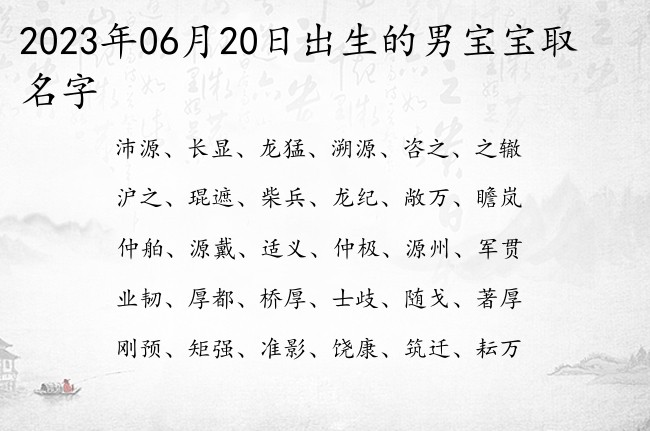 2023年06月20日出生的男宝宝取
名字
沛源、长显、龙猛、溯源、咨之、之辙
沪之、琨遮、柴兵、龙纪、敞万、瞻岚
仲舶、源戴、适义、仲极、源州、军贯
业韧、厚都、桥厚、士歧、随戈、著厚
刚预、矩强、准影、饶康、筑迁、耘万